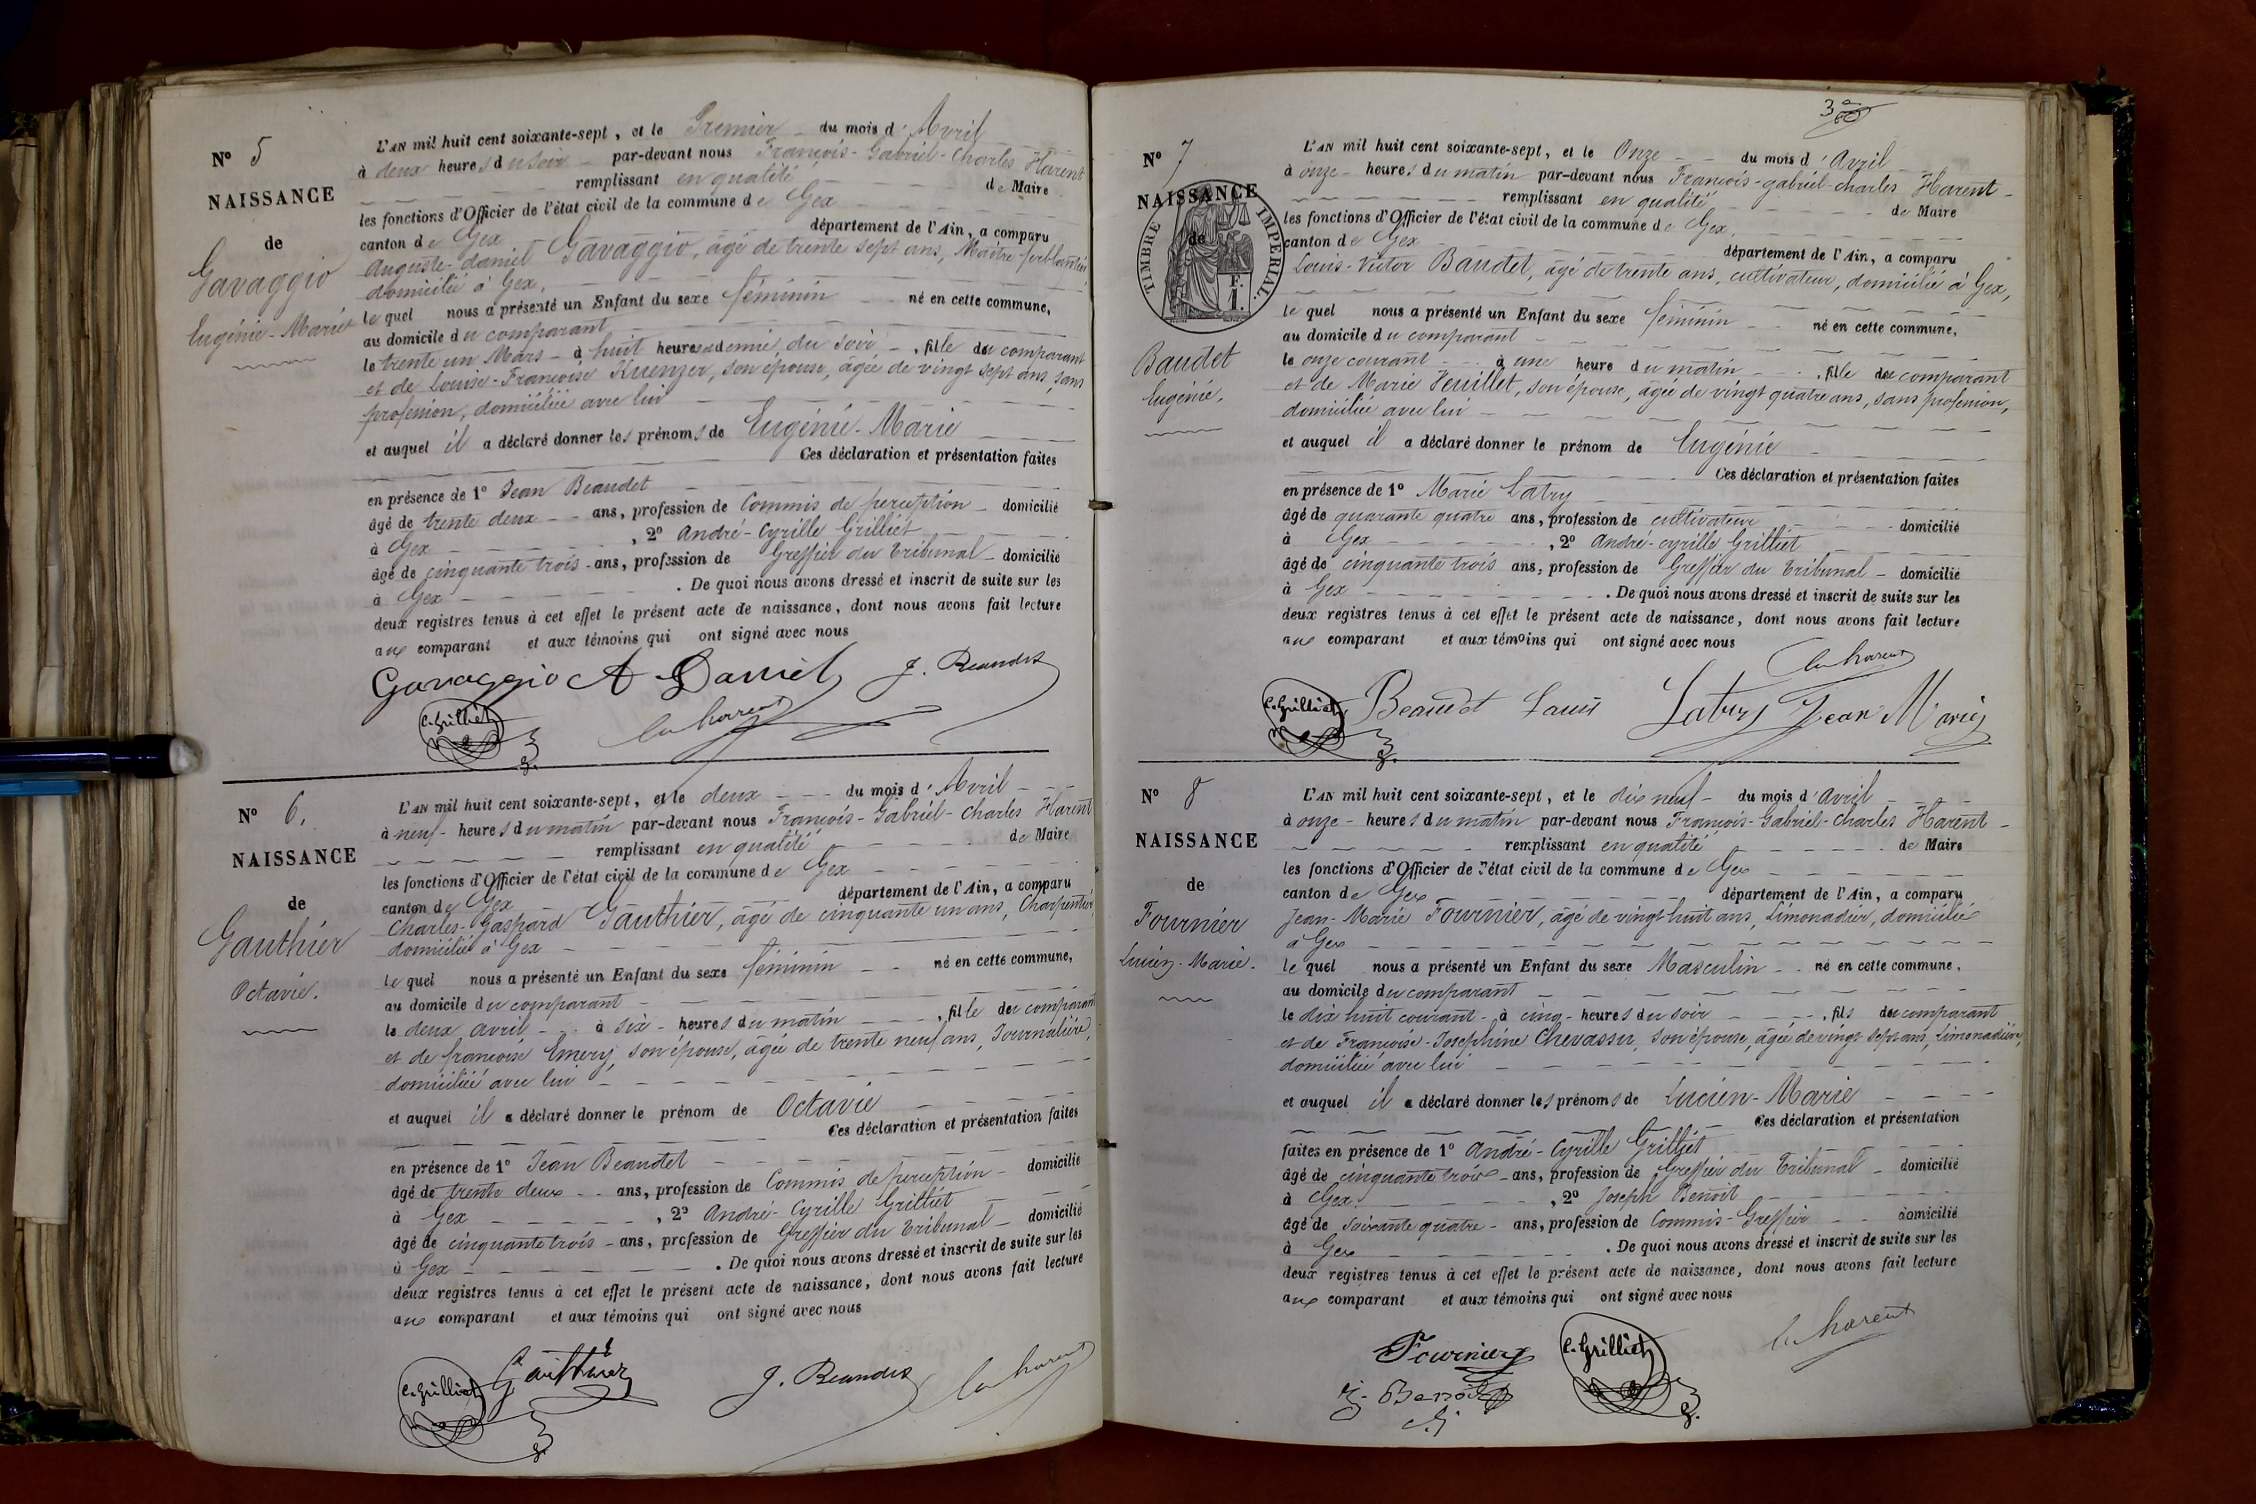 N° 5
NAISSANCE
de
Gavaggio
Eugénie-Marie
L'AN mil huit cent soixante-sept, et le Premier du mois d'Avril
à deux heures du soir par-devant nous François-Gabriel-Charles Harent
remplissant en qualité de Maire
les fonctions d'Officier de l'état civil de la commune de Gex
canton de Gex département de l'Ain, a comparu
Auguste-Daniel Gavaggio, âgé de trente sept ans, Maître ferblantier,
domicilié à Gex,
le quel nous a présenté un Enfant du sexe féminin né en cette commune,
au domicile du comparant
le trente un Mars à huit heures et demie du soir, fille du comparant
et de Louise-Françoise Kuenzer, son épouse, âgée de vingt sept ans, sans
profession, domiciliée avec lui
et auquel il a déclaré donner les prénoms de Eugénie-Marie
Ces déclaration et présentation faites
en présence de 1° Jean Beaudet
âgé de trente deux ans, profession de Commis de perception domicilié
à Gex, 2° André-Cyrille Grilliet
âgé de cinquante trois ans, profession de Greffier du Tribunal domicilié
à Gex. De quoi nous avons dressé et inscrit de suite sur les
deux registres tenus à cet effet le présent acte de naissance, dont nous avons fait lecture
aux comparant et aux témoins qui ont signé avec nous
Gavaggio A Daniel J. Beaudet
C. Grilliet Ch harent
N° 6.
NAISSANCE
de
Gauthier
Octavie.
L'AN mil huit cent soixante-sept, et le deux du mois d'Avril
à neuf heures du matin par-devant nous François-Gabriel-Charles Harent
remplissant en qualité de Maire
les fonctions d'Officier de l'état civil de la commune de Gex
canton de Gex département de l'Ain, a comparu
Charles-Gaspard Gauthier, âgé de cinquante un ans, Charpentier,
domicilié à Gex
le quel nous a présenté un Enfant du sexe féminin né en cette commune,
au domicile du comparant
le deux avril à six heures du matin, fille du comparant
et de françoise Emery, son épouse, âgée de trente neuf ans, Journalière,
domiciliée avec lui
et auquel il a déclaré donner le prénom de Octavie
Ces déclaration et présentation faites
en présence de 1° Jean Beaudet
âgé de trente deux ans, profession de Commis de perception domicilié
à Gex, 2° André-Cyrille Grilliet
âgé de cinquante trois ans, profession de Greffier du Tribunal domicilié
à Gex. De quoi nous avons dressé et inscrit de suite sur les
deux registres tenus à cet effet le présent acte de naissance, dont nous avons fait lecture
aux comparant et aux témoins qui ont signé avec nous
C. Grilliet Gauthier J. Beaudet Ch harent
3
N° 7
NAISSANCE
de
TIMBRE IMPERIAL.
F.
1.
Baudet
Eugénie,
L'AN mil huit cent soixante-sept, et le Onze du mois d'Avril
à onze heures du matin par-devant nous François-gabriel-charles Harent
remplissant en qualité de Maire
les fonctions d'Officier de l'état civil de la commune de Gex,
canton de Gex département de l'Ain, a comparu
Louis-Victor Baudet, âgé de trente ans, cultivateur, domicilié à Gex,
le quel nous a présenté un Enfant du sexe féminin né en cette commune,
au domicile du comparant
le onze courant à une heure du matin, fille du comparant
et de Marie Feuillet, son épouse, âgée de vingt quatre ans, sans profession,
domiciliée avec lui
et auquel il a déclaré donner le prénom de Eugénie
Ces déclaration et présentation faites
en présence de 1° Marie Latry
âgé de quarante quatre ans, profession de cultivateur domicilié
à Gex, 2° André-cyrille Grilliet
âgé de cinquante trois ans, profession de Greffier du Tribunal domicilié
à Gex. De quoi nous avons dressé et inscrit de suite sur les
deux registres tenus à cet effet le présent acte de naissance, dont nous avons fait lecture
aux comparant et aux témoins qui ont signé avec nous
Ch harent
C. Grilliet Beaudet Louis Latry Jean Marie
N° 8
NAISSANCE
de
Fournier
Lucien-Marie.
L'AN mil huit cent soixante-sept, et le dix neuf du mois d'Avril
à onze heures du matin par-devant nous François-Gabriel-Charles Harent
remplissant en qualité de Maire
les fonctions d'Officier de l'état civil de la commune de Gex
canton de Gex département de l'Ain, a comparu
Jean-Marie Fournier, âgé de vingt-huit ans, Limonadier, domicilié
à Gex
le quel nous a présenté un Enfant du sexe Masculin né en cette commune,
au domicile du comparant
le dix huit courant à cinq heures du soir, fils du comparant
et de Françoise-Joséphine Chevassu, son épouse, âgée de vingt sept ans, Limonadière,
domiciliée avec lui
et auquel il a déclaré donner les prénoms de Lucien-Marie
Ces déclaration et présentation
faites en présence de 1° André-Cyrille Grilliet
âgé de cinquante trois ans, profession de Greffier du Tribunal domicilié
à Gex, 2° Joseph Benoit
âgé de soixante quatre ans, profession de Commis-Greffier domicilié
à Gex. De quoi nous avons dressé et inscrit de suite sur les
deux registres tenus à cet effet le présent acte de naissance, dont nous avons fait lecture
aux comparant et aux témoins qui ont signé avec nous
Fournier C. Grilliet Ch harent
J. Benoit